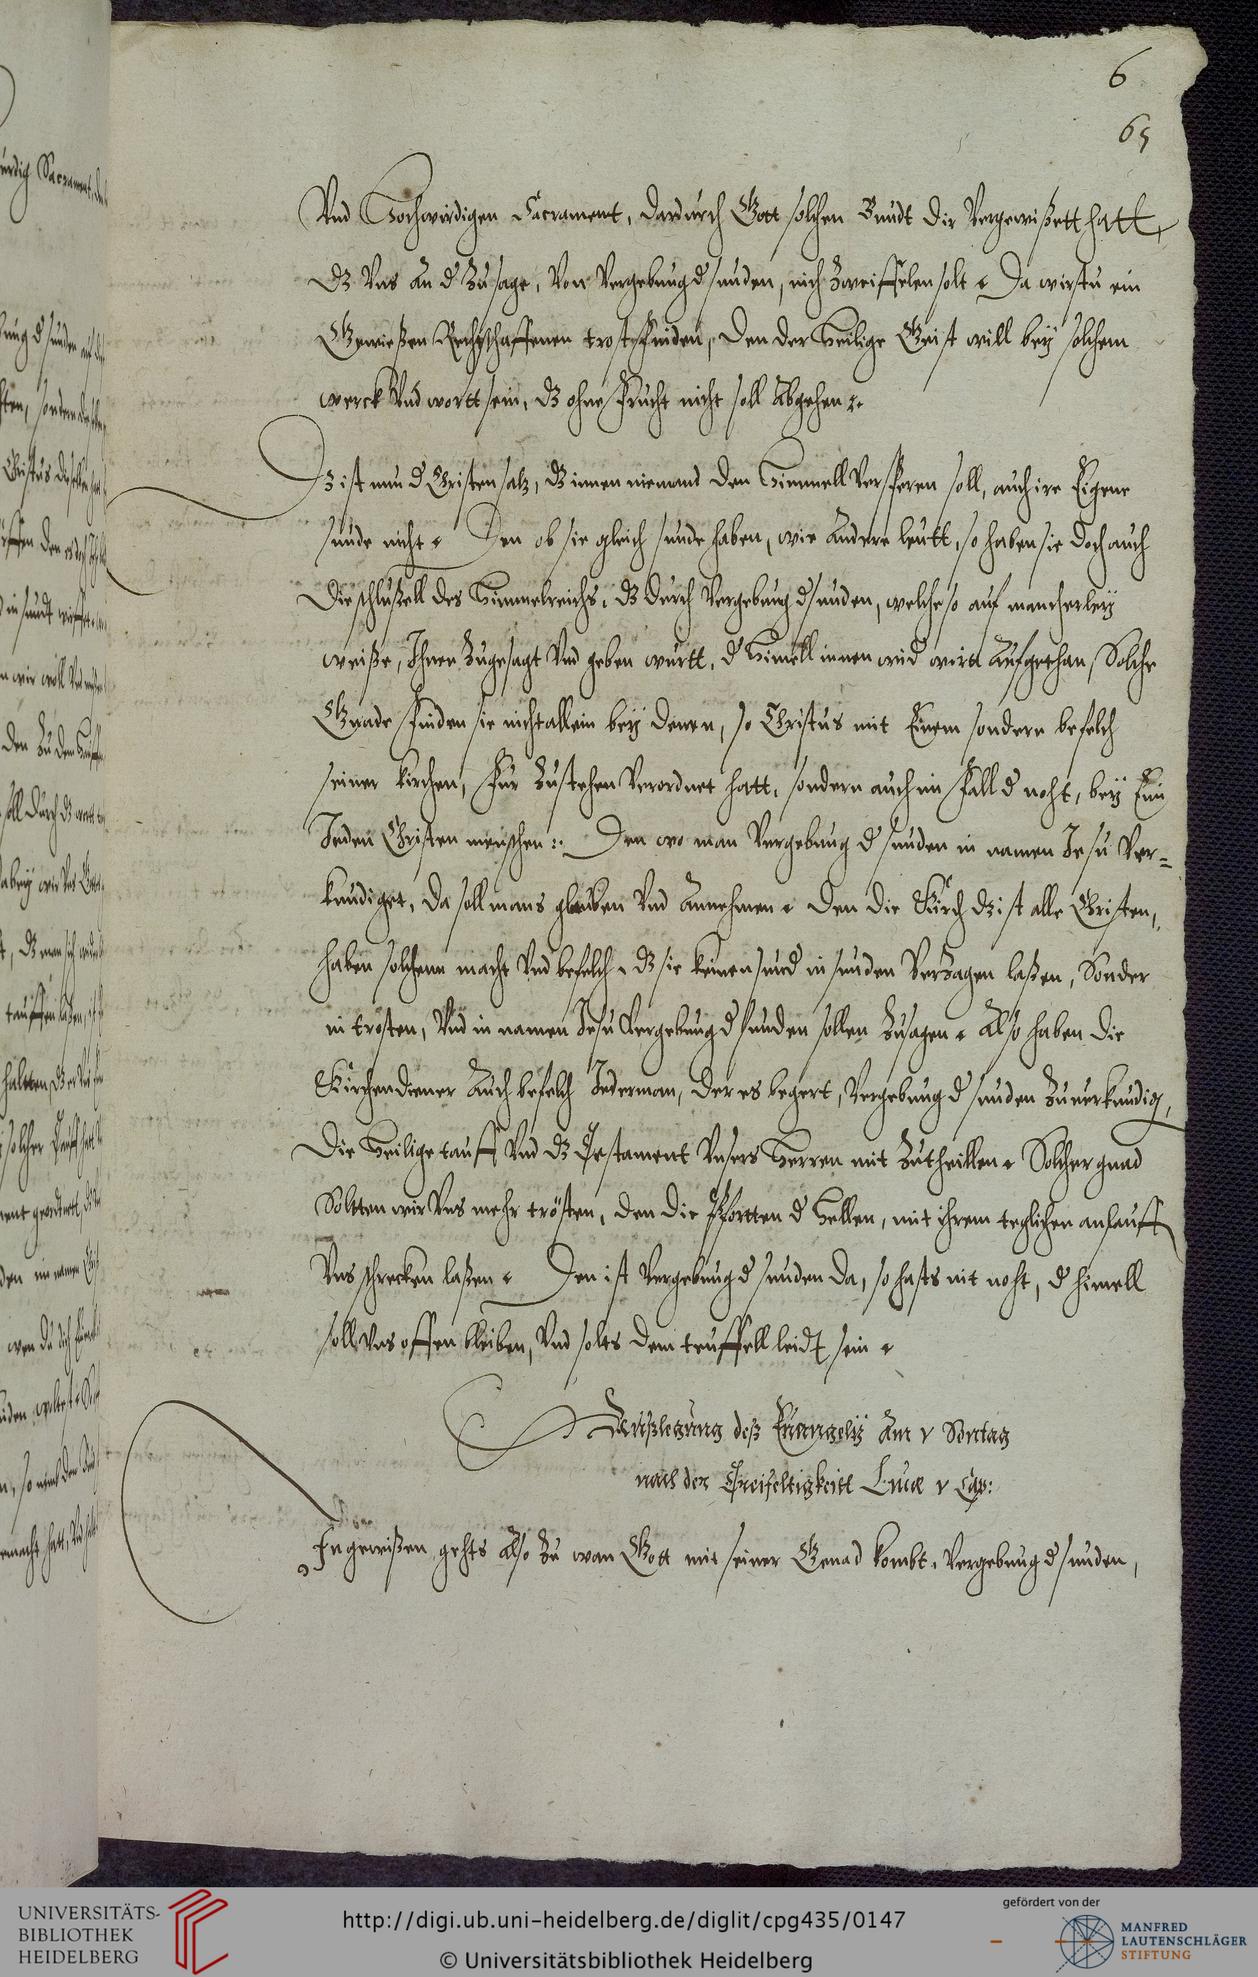 6
65
Vnd Hochwirdigen Sacrament, dardurch Gott solchen Bundt dir Vergewißett hatt,
dz Vns an d Zusage, Von Vergebung d sunden, nich Zweiffelen solt. Da wirstu ein
Gewießen Rechtschaffenen trost finden, Den der Heilige Geist will bey solchem
werck Vnd wortt sein, dz ohne frucht nicht soll Abgehen.
Dz ist nun d Christen salz, dz innen niemand den Himmell Versperen soll, auch ire Eigene
sunde nicht. Den ob sie gleich sunde haben, wie Andere leutt, so haben sie doch auch
Die schlußell des Himmelreichs, dz durch Vergebung d sunden, welche so auf mancherley
weiße, Ihnen Zugesagt Vnd geben wurtt, d Himell innen wid wirtt Aufgethan, Solche
Gnade finden sie nicht allein bey denen, so Christus mit Einem sondern befelch
seiner kirchen, für Zustehen Verordnet hatt, sondern auch im fall d noht, bey Ein
Jeden Christen menschen: Den wo man Vergebung d sunden in namen Jesu Ver=
kundiget, Da soll mans glauben Vnd Annehmen. Den die Kirch dz ist alle Christen,
haben solchenn macht Vnd befelch, dz sie keinen sund in sunden Verzagen laßen, Sonder
in trösten, Vnd in namen Jesu Vergebung d sunden sollen Zusagen. Also haben die
Kirchendiener Auch befelch Jederman, der es begert, Vergebung d sunden Zuuerkundig,
Die Heilige tauff Vnd dz Testament Vnsers Herren mit Zutheillen. Solcher gnad
Soltten wir Vns mehr trösten, den die Pfortten d Hellen, mit ihrem teglichen anlauff
Vns schrecken laßen. Den ist Vergebung d sunden da, so hats nit noht, d himell
soll Vns offen bleiben, Vnd solts dem teuffell leidt sein.
Außlegung deß Euangelij Am v Sontag
nach der Treifeltigkeitt Lucæ v Cap:
In gewißen gehts also Zu wan Gott mit seiner Genad kombt, Vergebung d sunden,
UNIVERSITÄTS-
BIBLIOTHEK
HEIDELBERG
http://digi.ub.uni-heidelberg.de/diglit/cpg435/0147
© Universitätsbibliothek Heidelberg
gefördert von der
MANFRED
LAUTENSCHLÄGER
STIFTUNG